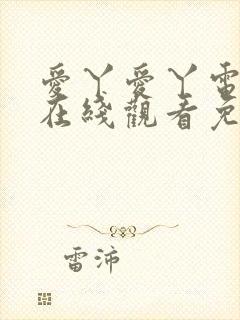 愛丫愛丫電
在綫觀看免
雷沛